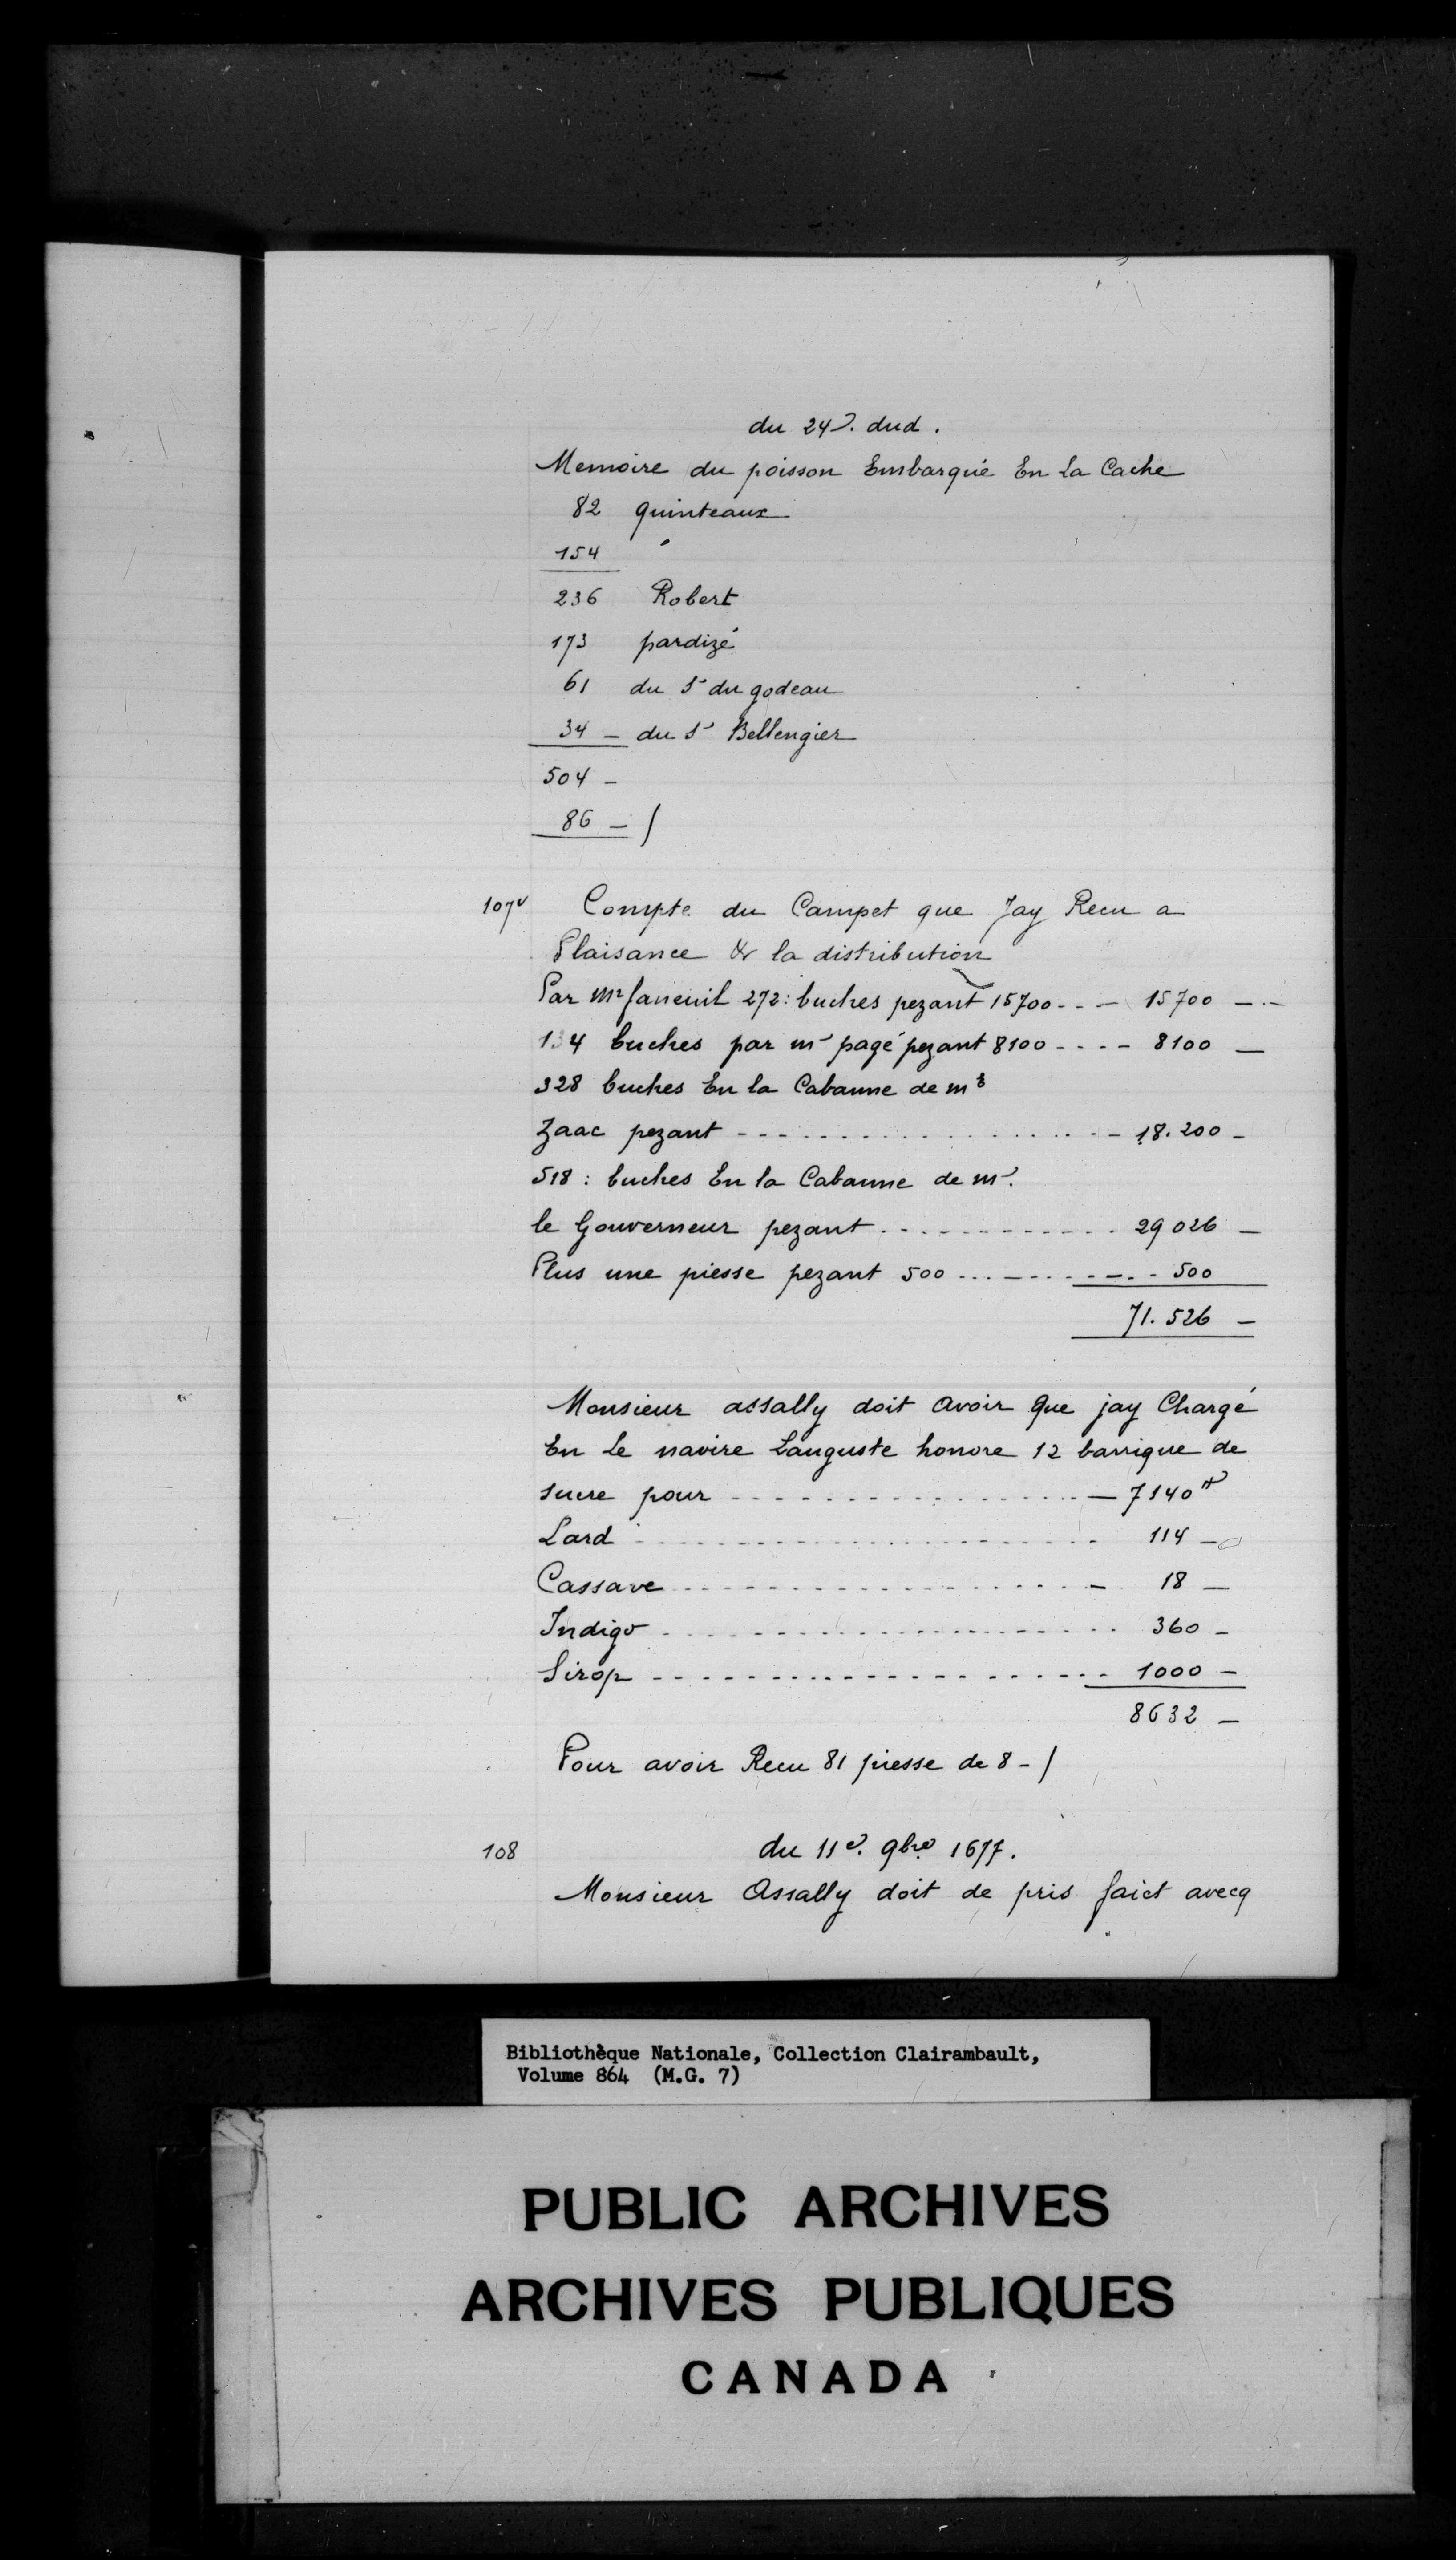 du 24e. dud.
Memoire du poisson Embarquié En La Cache
82 quinteaux
154 "
236 Robert
173 pardizé
61 du Sr du godeau
34 — du Sr Bellengier
504 —
86 — /
107v Compte du Campet que Jay Recu a
Plaisance & la distribution
Par Mr faneuil 272: buches pezant 15700 - - - 15700 —.—
134 buches par mr pagé pezant 8100 - - - - 8100 —
328 buches En la Cabanne de mr
Zaac pezant - - - - - - - - - - 18.200 -
518: buches En la Cabanne de mr.
le Gouverneur pezant - - - - - - - - 29026 —
Plus une piesse pezant 500 - - - - - - - 500
71.526 —
Monsieur assally doit avoir que jay Chargé
En Le navire Lauguste honore 12 barrique de
sucre pour - - - - - - - - - - — 7140 ₶
Lard - - - - - - - - - - - - 114 —
Cassave - - - - - - - - - - - 18 —
Indigo - - - - - - - - - - - 360 -
Sirop - - - - - - - - - - - 1000 —
8632 —
Pour avoir Recu 81 piesse de 8 - /
108 du 11e. 9bre 1677.
Monsieur Assally doit de pris faict avecq
Bibliothèque Nationale, Collection Clairambault,
Volume 864 (M.G. 7)
PUBLIC ARCHIVES
ARCHIVES PUBLIQUES
CANADA